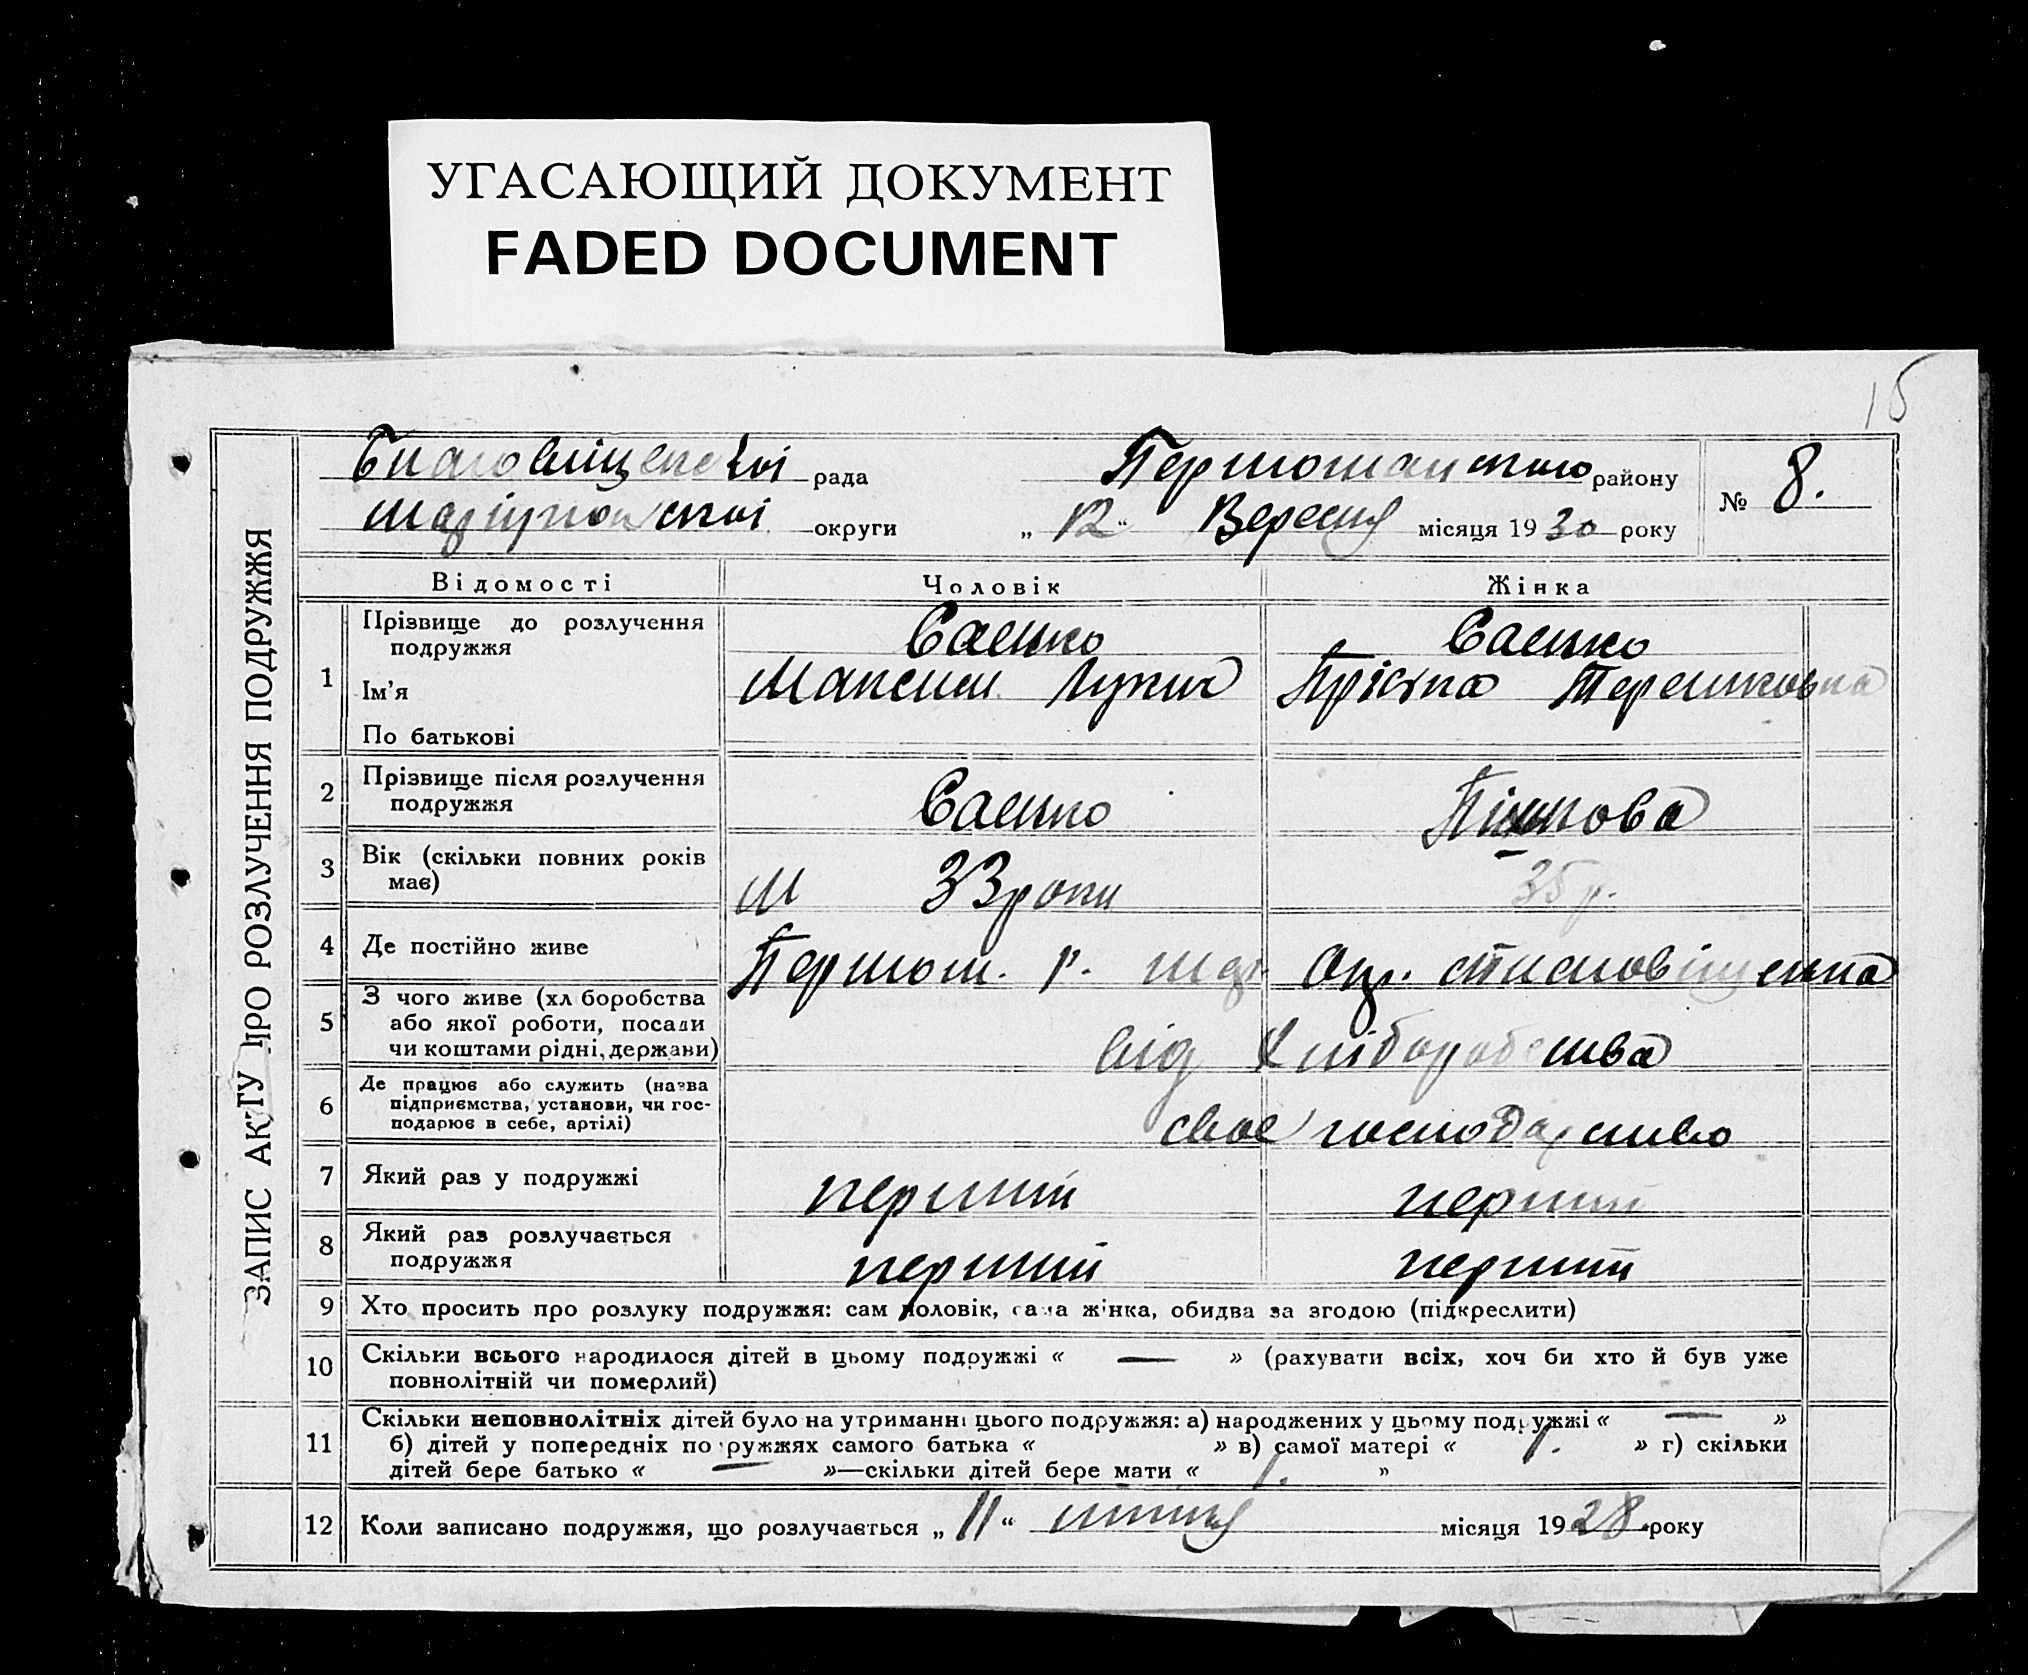 УГАСАЮЩИЙ ДОКУМЕНТ
FADED DOCUMENT
15
ЗАПИС АКТУ ПРО РОЗЛУЧЕННЯ ПОДРУЖЖЯ
Благовіщенської рада Першотравнського району № 8.
Маріупольської округи „ 12 “ Вересня місяця 1930 року
Відомості Чоловік Жінка
1 Прізвище до розлучення подружжя Саенко Саенко
Ім'я Максим Лукич Терешковна
По батькові
2 Прізвище після розлучення подружжя Саенко
3 Вік (скільки повних років має) М 33 роки 35 р.
4 Де постійно живе Першот. р. Окр.
5 З чого живе (хліборобства або якої роботи, посади чи коштами рідні, держави) від хліборобства
6 Де працює або служить (назва підприємства, установи, чи господарює в себе, артілі) своє господарство
7 Який раз у подружжі перший перший
8 Який раз розлучається подружжя перший перший
9 Хто просить про розлуку подружжя: сам чоловік, сама жінка, обидва за згодою (підкреслити)
10 Скільки всього народилося дітей в цьому подружжі « — » (рахувати всіх, хоч би хто й був уже
повнолітній чи померлий)
11 Скільки неповнолітніх дітей було на утриманні цього подружжя: а) народжених у цьому подружжі « — »
б) дітей у попередніх подружжях самого батька « » в) самої матері « 1. » г) скільки
дітей бере батько « — »—скільки дітей бере мати « 1. »
12 Коли записано подружжя, що розлучається „ 11 “ місяця 1928 року